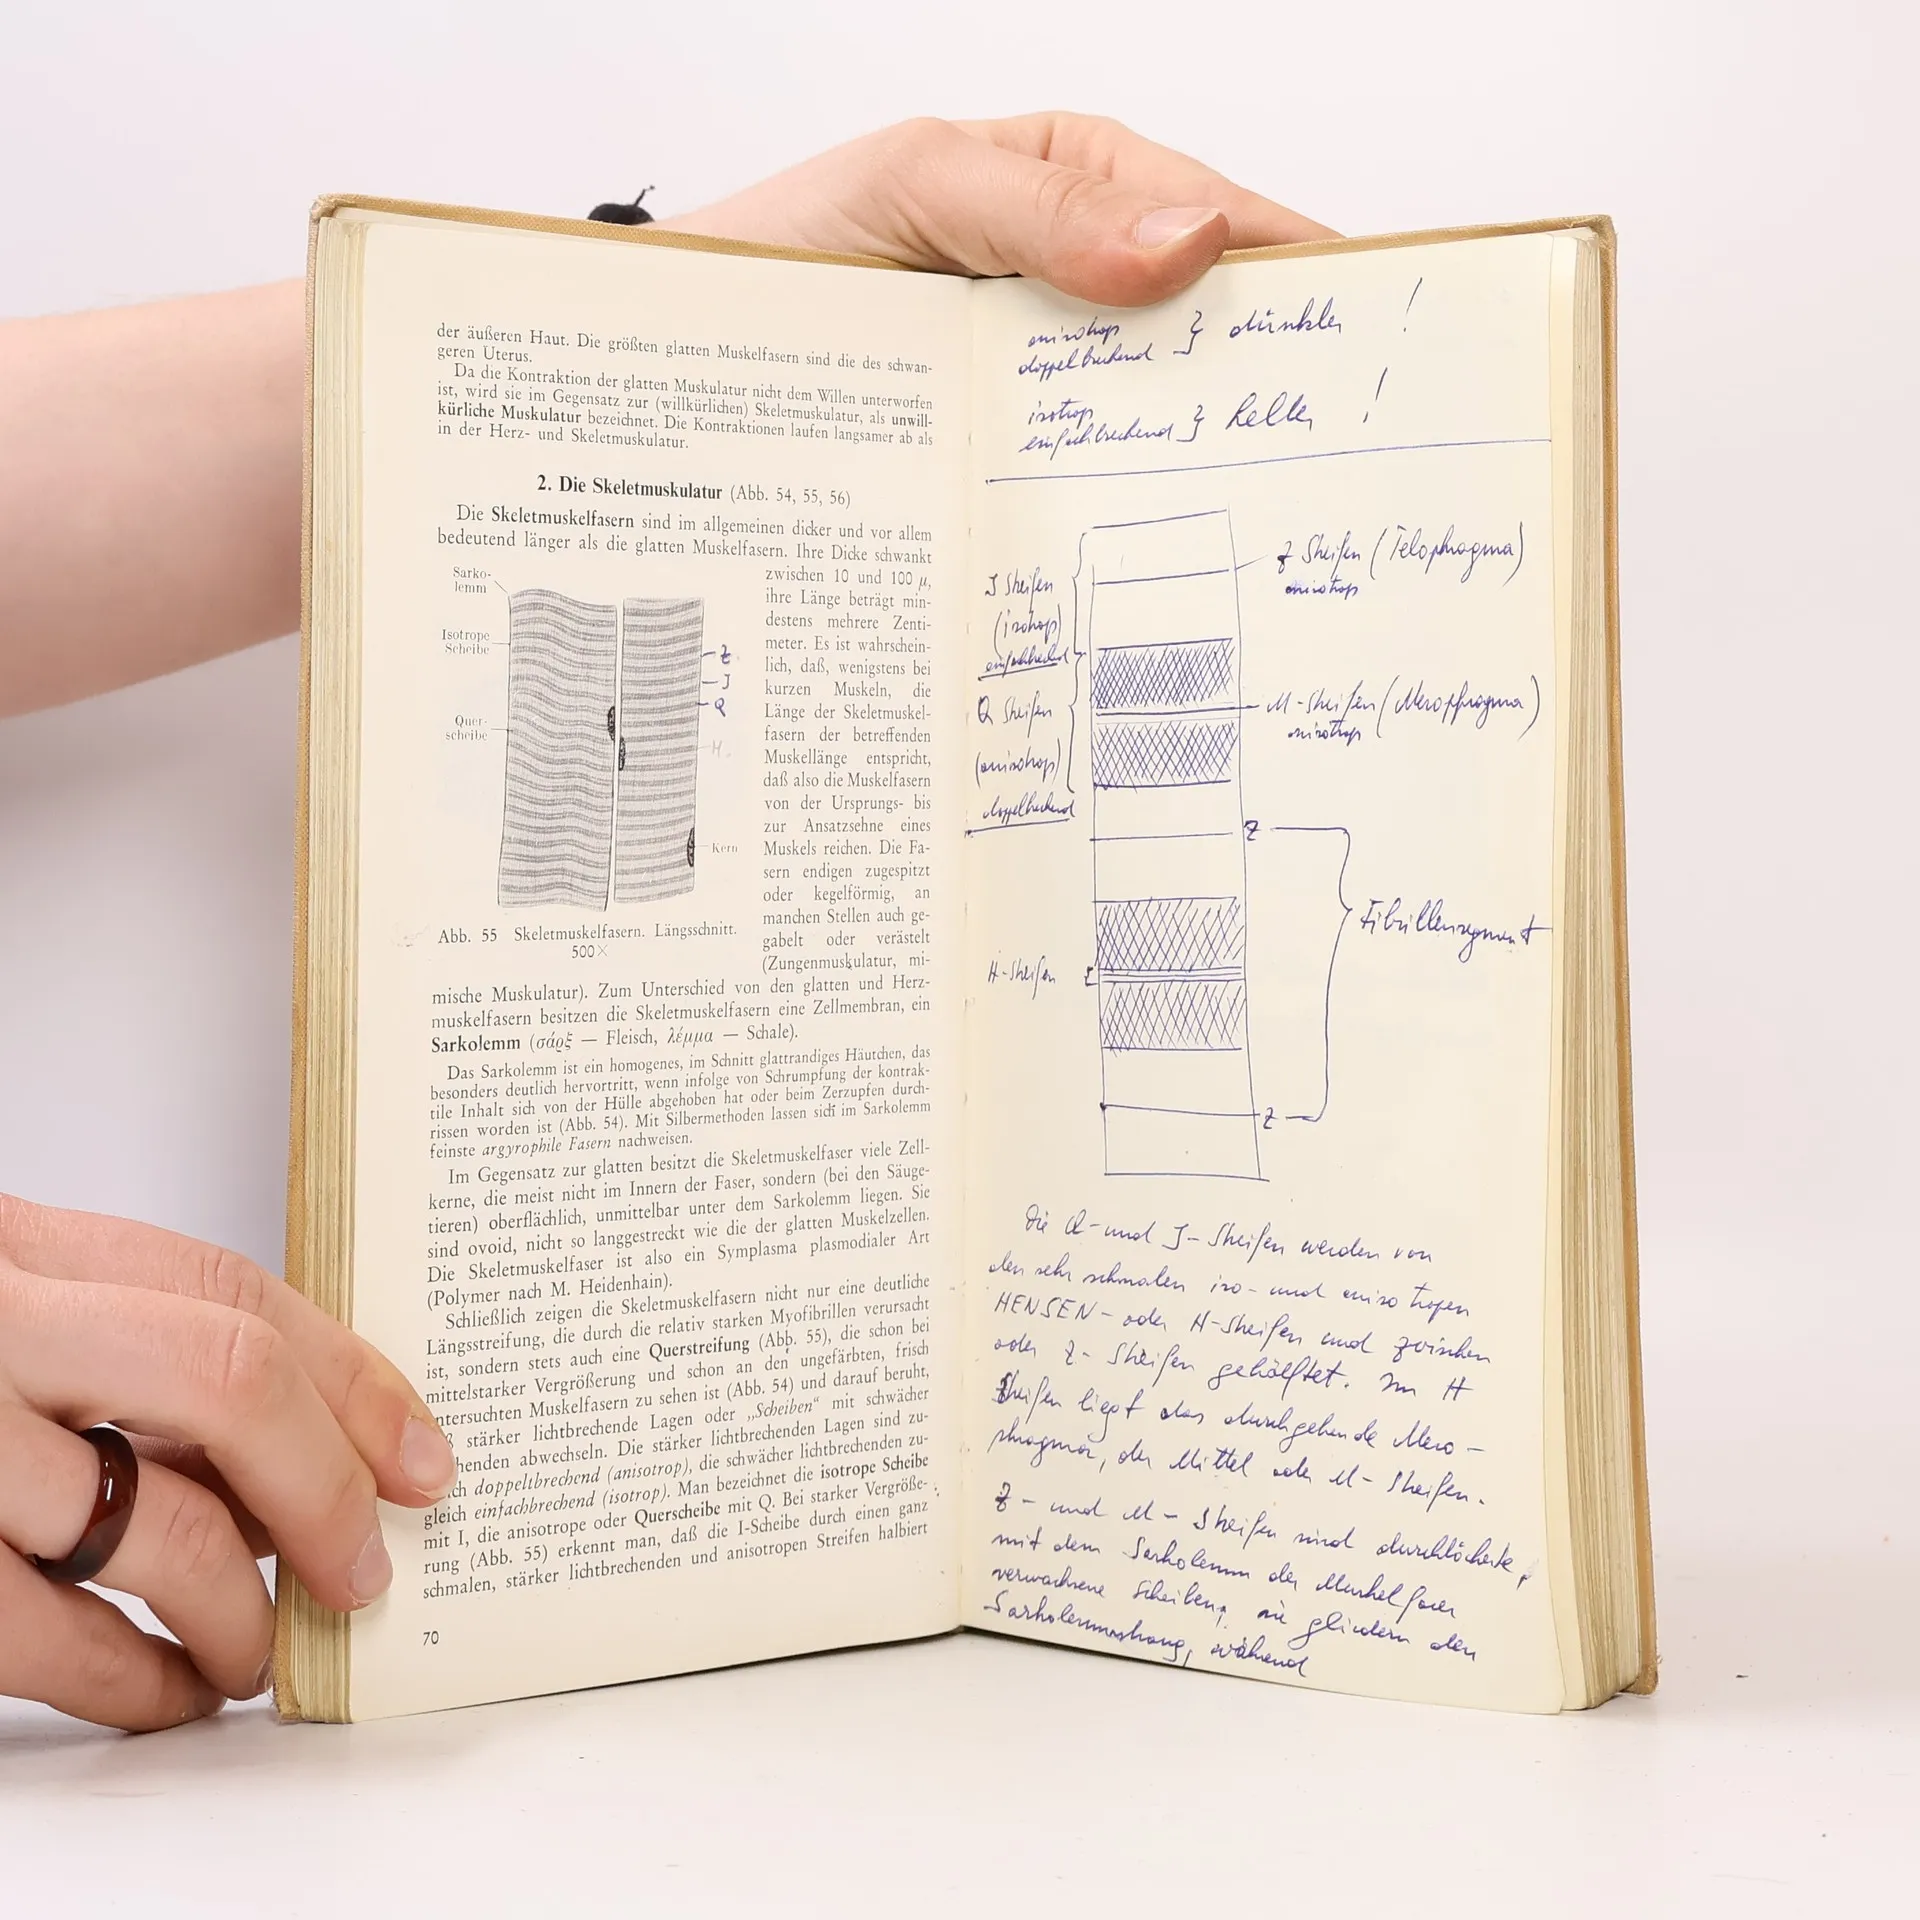 der äußeren Haut. Die größten glatten Muskelfasern sind die des schwan-
geren Uterus.
Da die Kontraktion der glatten Muskulatur nicht dem Willen unterworfen
ist, wird sie im Gegensatz zur (willkürlichen) Skeletmuskulatur, als unwill-
kürliche Muskulatur bezeichnet. Die Kontraktionen laufen langsamer ab als
in der Herz- und Skeletmuskulatur.
2. Die Skeletmuskulatur (Abb. 54, 55, 56)
Die Skeletmuskelfasern sind im allgemeinen dicker und vor allem
bedeutend länger als die glatten Muskelfasern. Ihre Dicke schwankt
zwischen 10 und 100 μ,
ihre Länge beträgt min-
destens mehrere Zenti-
meter. Es ist wahrschein-
lich, daß, wenigstens bei
kurzen Muskeln, die
Länge der Skeletmuskel-
fasern der betreffenden
Muskellänge entspricht,
daß also die Muskelfasern
von der Ursprungs- bis
zur Ansatzsehne eines
Muskels reichen. Die Fa-
sern endigen zugespitzt
oder kegelförmig, an
manchen Stellen auch ge-
gabelt oder verästelt
(Zungenmuskulatur, mi-
Sarko-
lemm
Isotrope
Scheibe
Quer-
scheibe
Z
J
Q
H
Kern
Abb. 55 Skeletmuskelfasern. Längsschnitt.
500×
mische Muskulatur). Zum Unterschied von den glatten und Herz-
muskelfasern besitzen die Skeletmuskelfasern eine Zellmembran, ein
Sarkolemm (σάρξ — Fleisch, λέμμα — Schale).
Das Sarkolemm ist ein homogenes, im Schnitt glattrandiges Häutchen, das
besonders deutlich hervortritt, wenn infolge von Schrumpfung der kontrak-
tile Inhalt sich von der Hülle abgehoben hat oder beim Zerzupfen durch-
rissen worden ist (Abb. 54). Mit Silbermethoden lassen sich im Sarkolemm
feinste argyrophile Fasern nachweisen.
Im Gegensatz zur glatten besitzt die Skeletmuskelfaser viele Zell-
kerne, die meist nicht im Innern der Faser, sondern (bei den Säuge-
tieren) oberflächlich, unmittelbar unter dem Sarkolemm liegen. Sie
sind ovoid, nicht so langgestreckt wie die der glatten Muskelzellen.
Die Skeletmuskelfaser ist also ein Symplasma plasmodialer Art
(Polymer nach M. Heidenhain).
Schließlich zeigen die Skeletmuskelfasern nicht nur eine deutliche
Längsstreifung, die durch die relativ starken Myofibrillen verursacht
ist, sondern stets auch eine Querstreifung (Abb. 55), die schon bei
mittelstarker Vergrößerung und schon an den ungefärbten, frisch
untersuchten Muskelfasern zu sehen ist (Abb. 54) und darauf beruht,
stärker lichtbrechende Lagen oder „Scheiben“ mit schwächer
henden abwechseln. Die stärker lichtbrechenden Lagen sind zu-
ch doppeltbrechend (anisotrop), die schwächer lichtbrechenden zu-
gleich einfachbrechend (isotrop). Man bezeichnet die isotrope Scheibe
mit I, die anisotrope oder Querscheibe mit Q. Bei starker Vergröße-
rung (Abb. 55) erkennt man, daß die I-Scheibe durch einen ganz
schmalen, stärker lichtbrechenden und anisotropen Streifen halbiert
70
anisotrop
doppelbrechend } dunkler !
isotrop
einfachbrechend } heller !
J Streifen
(isotrop)
einfachbrechend
Q Streifen
(anisotrop)
doppelbrechend
H-Streifen
Z Streifen (Telophragma)
anisotrop
M-Streifen (Mesophragma)
anisotrop
Z
Fibrillensegment
Z
Die Q- und J- Streifen werden von
den sehr schmalen iso- und anisotropen
HENSEN- oder H-Streifen und Zwischen
oder Z- Streifen gehälftet. Im H
Streifen liegt das durchgehende Meso-
phragma, der Mittel oder M- Streifen.
Z- und M- Streifen sind durchlöcherte,
mit dem Sarkolemm der Muskelfaser
verwachsene Scheiben; sie gliedern den
während